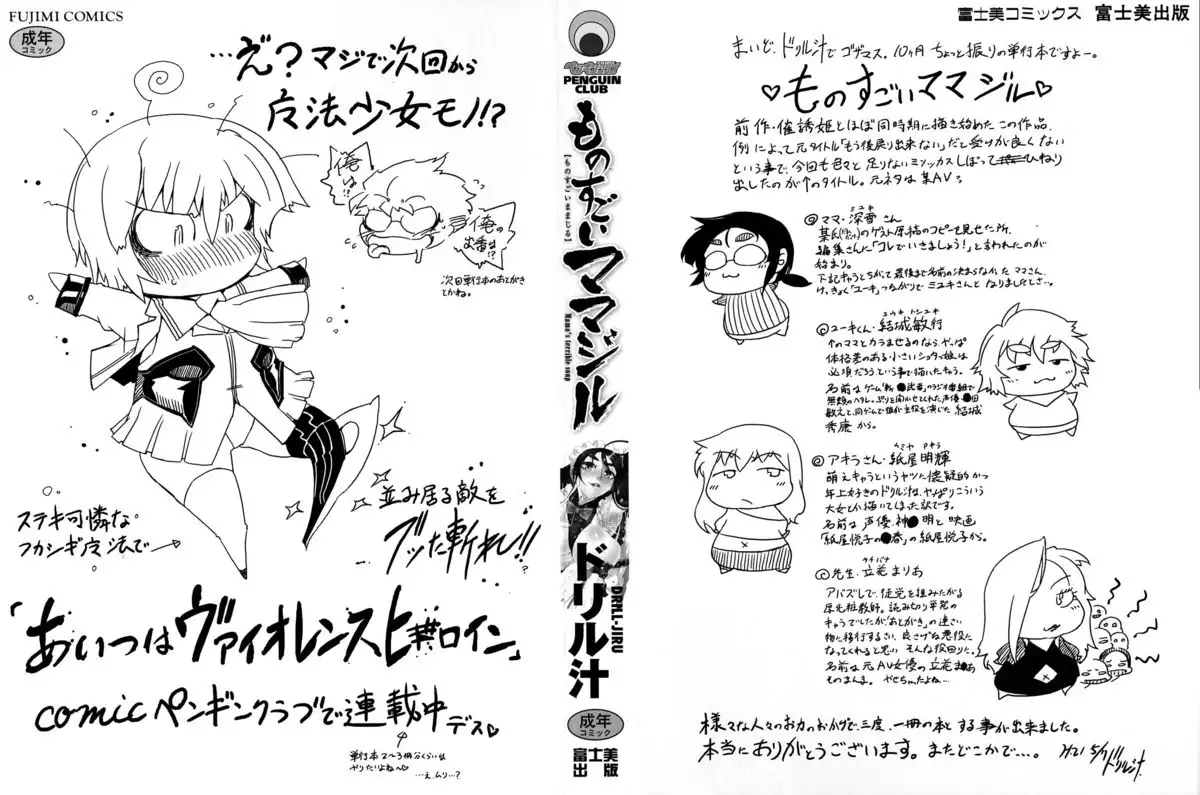 FUJIMI COMICS
成年
コミック
…え?マジで次回から
魔法少女モノ!?
俺は!?
俺の
出番は!?
次回単行本のあとがき
とかね。
ステキ可憐な
フカシギ魔法で
並み居る敵を
ブッた斬れ!!
「あいつはヴァイオレンスヒロイン」
comicペンギンクラブで連載中デス♡
単行本2〜3冊分くらいは
やりたいよね〜♡
…え、ムリ…?
PENGUIN
CLUB
ものすごいママジル
【ものすごいままじる】
Mama's terrible soup
ドリル汁
DRILL-JIRU
成年
コミック
富士美
出版
富士美コミックス 富士美出版
まいど、ドリル汁でゴザマス。10ヶ月ちょっと振りの単行本ですよー。
♡ものすごいママジル♡
前作・催誘姫とほぼ同時期に描き始めたこの作品、
例によって元タイトル「もう後戻り出来ない」だと受けが良くない
という事で、今回も色々と足りないミソッカスしぼってひねり
出したのがこのタイトル。元ネタは某AV。
◎ママ・深雪さん
ミユキ
のゲスト原稿のコピーを見せた所、
編集さんに「コレでいきましょう!」と言われたのが
始まり。
下記キャラとちがって最後まで名前の決まらなかったママさん。
けっきょく「ユーキ」つながりでミユキさんとなりましたとさ…。
◎ユーキくん・結城敏行
ユウキ トシユキ
秀康から。
◎アキラさん・紙屋明輝
カミヤ アキラ
萌えキャラというヤツに懐疑的かつ
年上好きのドリル汁は、やっぱりこういう
大女とか描いてしまった訳です。
名前は声優・神●明と映画
「紙屋悦子の●春」の紙屋悦子から。
◎先生・立花まりあ
タチバナ
アバズレで、徒党を組みたがる
厚化粧教師。読み切り単発の
なってくれると思い、そんな役回りに。
名前は元AV女優の立花ま●あ
そのまんま。やせちゃったよね…
様々な人々のお力のおかげで、三度、一冊の本とする事が出来ました。
本当にありがとうございます。またどこかで…。
ドリル汁